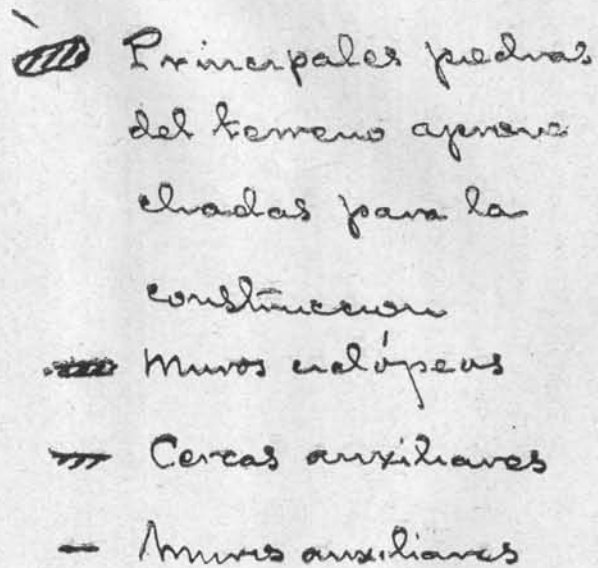 Principales piedras
del terreno aprove
chadas para la
construccion
Muros ciclópeos
Cercas auxiliares
Muros auxiliares